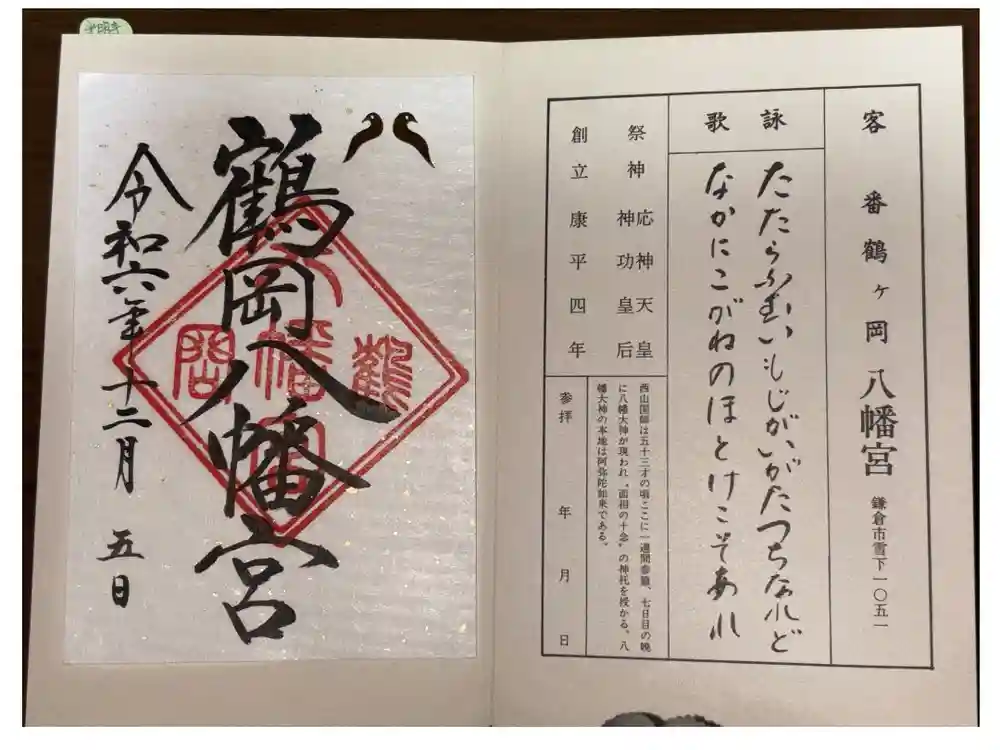 客番 鶴ヶ岡八幡宮 鎌倉市雪下一〇五一
詠歌
たたらふむいもじがいがたつちなれど
なかにこがねのほとけこそあれ
祭神 応神天皇
神功皇后
創立 康平四年
西山国師は五十三才の頃ここに一週間参籠、七日目の晩
に八幡大神が現われ〝面相の十念〟の神托を授かる。八
幡大神の本地は阿弥陀如来である。
参拝 年 月 日
鶴岡八幡宮
鶴
幡
岡
令和六年十二月五日